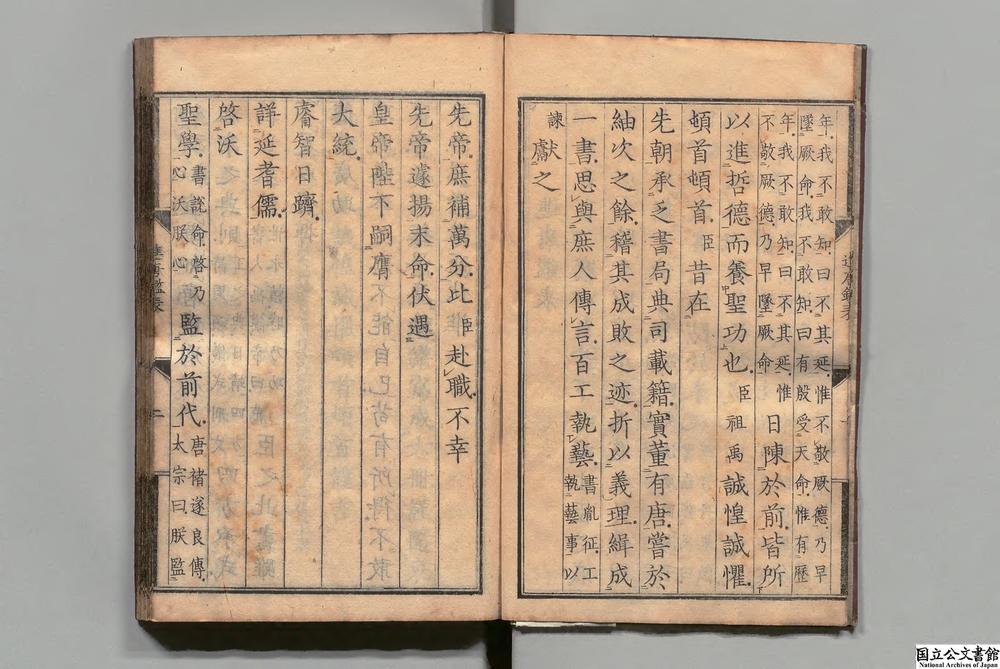 年我不敢知曰不其延惟不敬厥德乃早
墜厥命我不敢知曰有殷受天命惟有歷
年我不敢知曰不其延惟
不敬厥德乃早墜厥命
日陳於前皆所
以進哲德而養聖功也臣祖禹誠惶誠懼
頓首頓首臣昔在
先朝承乏書局典司載籍實董有唐嘗於
紬次之餘稽其成敗之迹折以義理緝成
一書思與庶人傳言百工執藝
書胤征工
執藝事以
諫
獻之
先帝庶補萬分比臣赴職不幸
先帝遽揚末命伏遇
皇帝陛下嗣膺
大統
睿智日躋
詳延耆儒
啓沃
聖學
書説命啓乃
心沃朕心
監於前代
唐褚遂良傳
太宗曰朕監
二
国立公文書館
National Archives of Japan